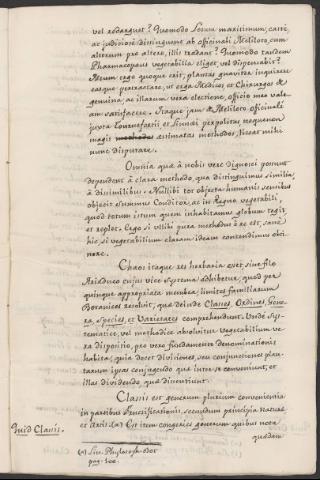 vel redarguet? Quomodo Lotum maritimum, caeci,
ac judiciose distinguent ab officinali Meliloto, cum
alterum pro altero, illis tradant? Quomodo tandem
Pharmacopaeus vegetabilia eliget, vel dispensabit?
Meum ergo quoque erit, plantas gnaviter inquirere
easque pertractare, ut erga Medicos et Chirurgos &
genuina ac illarum vera electione, officio meo vale-
am satisfacere. Itaque jam & Meliloto officinali
juxta Tournefortii et Linnaei perpolitas nequenon
magis methodos aestimatas methodos, liceat mihi
nunc disputare.
Omnia quae à nobis vere dignosci possunt
dependent à clara methodo, qua distinguimus similia,
à dissimilibus. Nullibi tot objecta humanis sensibus
objecit summus Conditor, ac in Regno vegetabili,
quod totum istum quem inhabitamus globum tegit,
et replet. Ergo si ullibi pura methodus è re est, sane
hic, si vegetabilium claram ideam contendimus obti-
nere.
Chaos itaque res herbaria evet, sine filo
Ariadneo cujus vice Systema adhibetur, quod per
quinque appropriata membra, limites familiarum
Botanices resolvit, quae deinde Classes, Ordines, Gene-
ra, Species, et Varietates comprehendunt. Unde Sys-
tematice, vel methodice absolvitur vegetabilium ve-
ra dispositio, pro vero fundamento denominationis
habita, quia docet divisiones, seu conjunctiones plan-
tarum ipsas conjungendo quae inter se conveniunt, et
illas dividendo quae dissentiunt.
Classis est generum plurium convenientia
in partibus Fructificationis, secundum principia Naturae
Quid Classis.
et Artis. (a) Est item congeries generum quibus nota
quaedam
(a) Lin. Phylosoph. Bot
pag. 100.